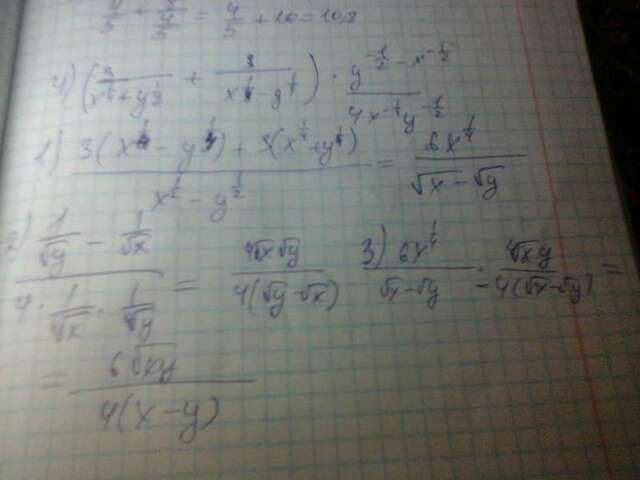 = 4/5 + 10 = 10,8
4) (3/(x^{1/4} + y^{1/4}) + 3/(x^{1/4} - y^{1/4})) · (y^{-1/2} - x^{-1/2})/(4x^{-1/4}y^{-1/2})
1) (3(x^{1/4} - y^{1/4}) + 3(x^{1/4} + y^{1/4}))/(x^{1/2} - y^{1/2}) = 6x^{1/4}/(√x - √y)
2) (1/√y - 1/√x)/(4 · 1/∜x · 1/√y) = ∜x √y/(4(√y - √x)) 3) 6x^{1/4}/(√x - √y) · ∜x y/(-4(√x - √y)) =
= 6√xy/(4(x - y))